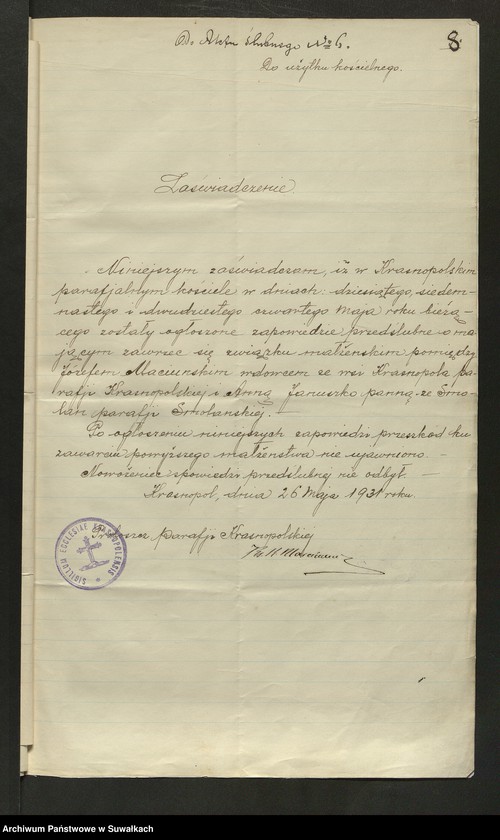 Do Aktu ślubnego № 6.
8
Do użytku kościelnego.
Zaświadczenie
Niniejszym zaświadczam, iż w Krasnopolskim
parafjalnym kościele w dniach: dziesiątego, siedem-
nastego i dwudziestego czwartego maja roku bieżą-
cego zostały ogłoszone zapowiedzie przedślubne o ma-
jącym zawrzeć się związku małżeńskim pomiędzy
Józefem Maciuńskim wdowcem ze wsi Krasnopola pa-
rafji Krasnopolskiej i Anną Januszko panną ze Smo-
lan parafji Smolańskiej.
Po ogłoszeniu niniejszych zapowiedzi przeszkód ku
zawarciu powyższego małżeństwa nie ujawniono.
Nowożeniec spowiedzi przedślubnej nie odbył.
Krasnopol, dnia 26 Maja 1931 roku.
Proboszcz parafji Krasnopolskiej
SIGILLUM ECCLESIAE KRASNOPOLENSIS
Archiwum Państwowe w Suwałkach